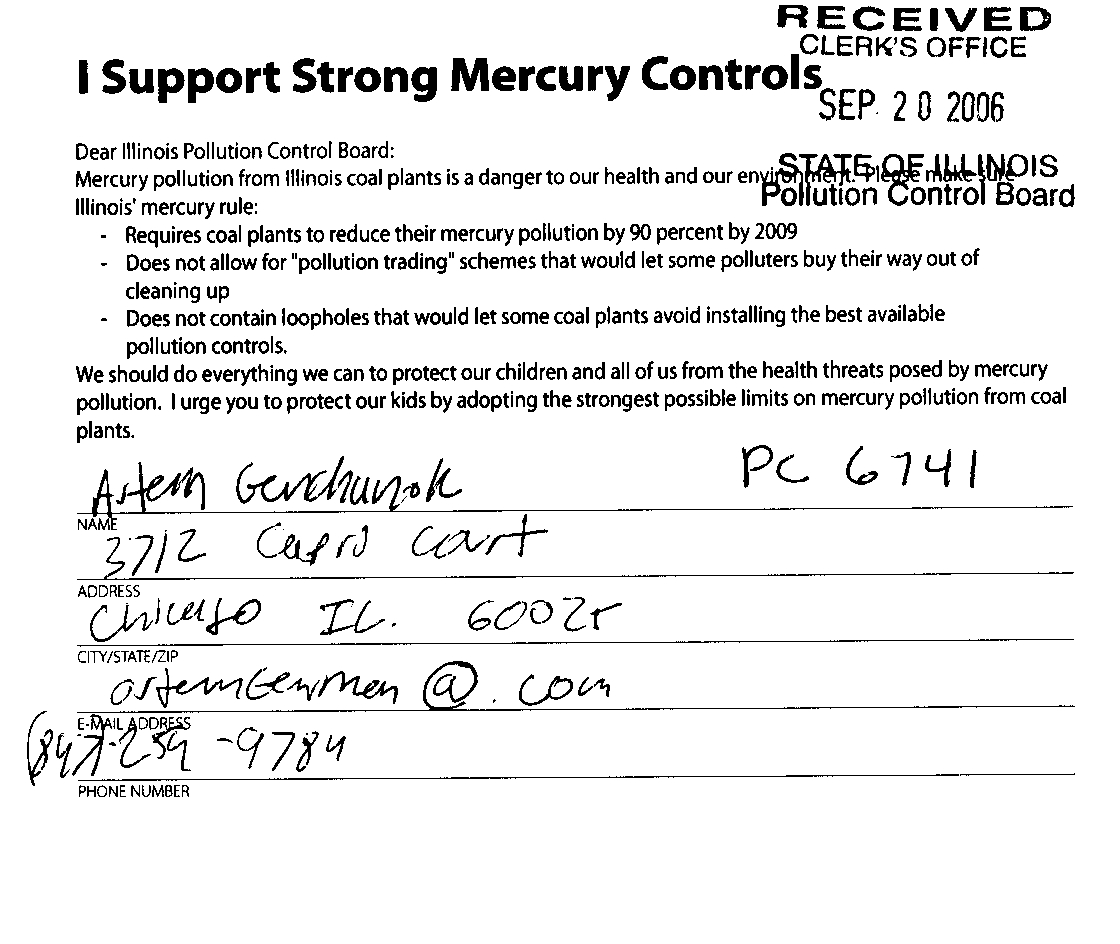 RECEIVED
CLERK'S OFFICE
I Support Strong Mercury Controls
SEP 20 2006
Dear Illinois Pollution Control Board:
STATE OF ILLINOIS
Mercury pollution from Illinois coal plants is a danger to our health and our environment. Please make sure
Pollution Control Board
Illinois' mercury rule:
- Requires coal plants to reduce their mercury pollution by 90 percent by 2009
- Does not allow for "pollution trading" schemes that would let some polluters buy their way out of
cleaning up
- Does not contain loopholes that would let some coal plants avoid installing the best available
pollution controls.
We should do everything we can to protect our children and all of us from the health threats posed by mercury
pollution. I urge you to protect our kids by adopting the strongest possible limits on mercury pollution from coal
plants.
Artem
PC 6741
NAME
3712 Court
ADDRESS
Chicago IL.
CITY/STATE/ZIP
@.com
E-MAIL ADDRESS
(847-259-9784
PHONE NUMBER